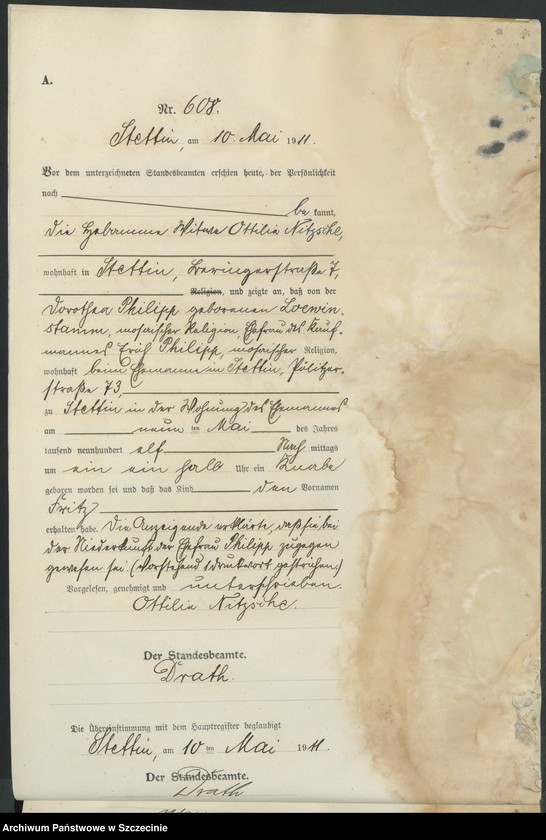 A.
Nr. 608.
Stettin, am 10. Mai 1911.
Vor dem unterzeichneten Standesbeamten erschien heute, der Persönlichkeit
nach
be kannt,
die Hebamme Witwe Ottilie Nitzsche,
wohnhaft in Stettin, Beringerstraße 7,
Religion, und zeigte an, daß von der
Dorothea Philipp geborenen Loewin-
stamm, mosaischer Religion, Ehefrau des Kauf-
mannes Erich Philipp, mosaischer Religion,
wohnhaft beim Ehemanne in Stettin, Pölitzer-
straße 73,
zu Stettin in der Wohnung des Ehemannes
am neun ten Mai des Jahres
tausend neunhundert elf Nach mittags
um ein ein halb Uhr ein Knabe
geboren worden sei und daß das Kind den Vornamen
Fritz
erhalten habe. Die Anzeigende erklärte, daß sie bei
der Niederkunft der Ehefrau Philipp zugegen
gewesen sei. (Vorstehend 1 Druckwort gestrichen)
Vorgelesen, genehmigt und unterschrieben.
Ottilie Nitzsche.
Der Standesbeamte.
Drath.
Die Übereinstimmung mit dem Hauptregister beglaubigt
Stettin, am 10 ten Mai 1911.
Der Standesbeamte.
Drath
Archiwum Państwowe w Szczecinie